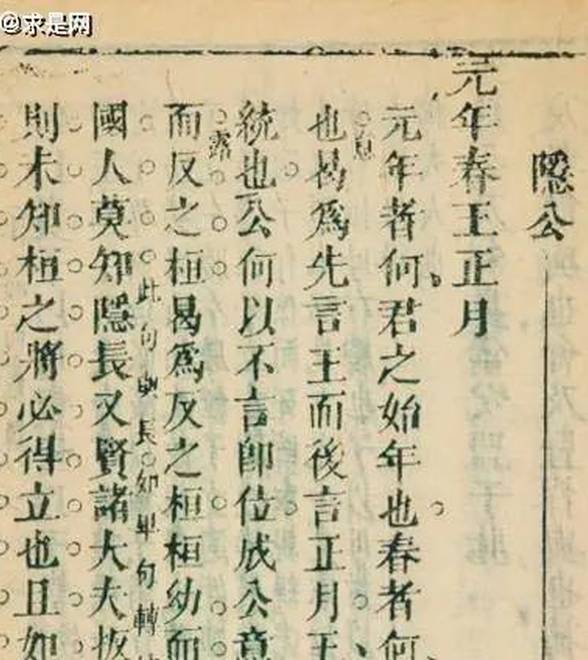 @求是网
隱公
元年春王正月
元年者何君之始年也春者何
也曷爲先言王而後言正月王
統也公何以不言卽位成公意
露
而反之桓曷爲反之桓桓幼而
此句與長如單句轉
國人莫知隱長又賢諸大夫扳
則未知桓之將必得立也且如